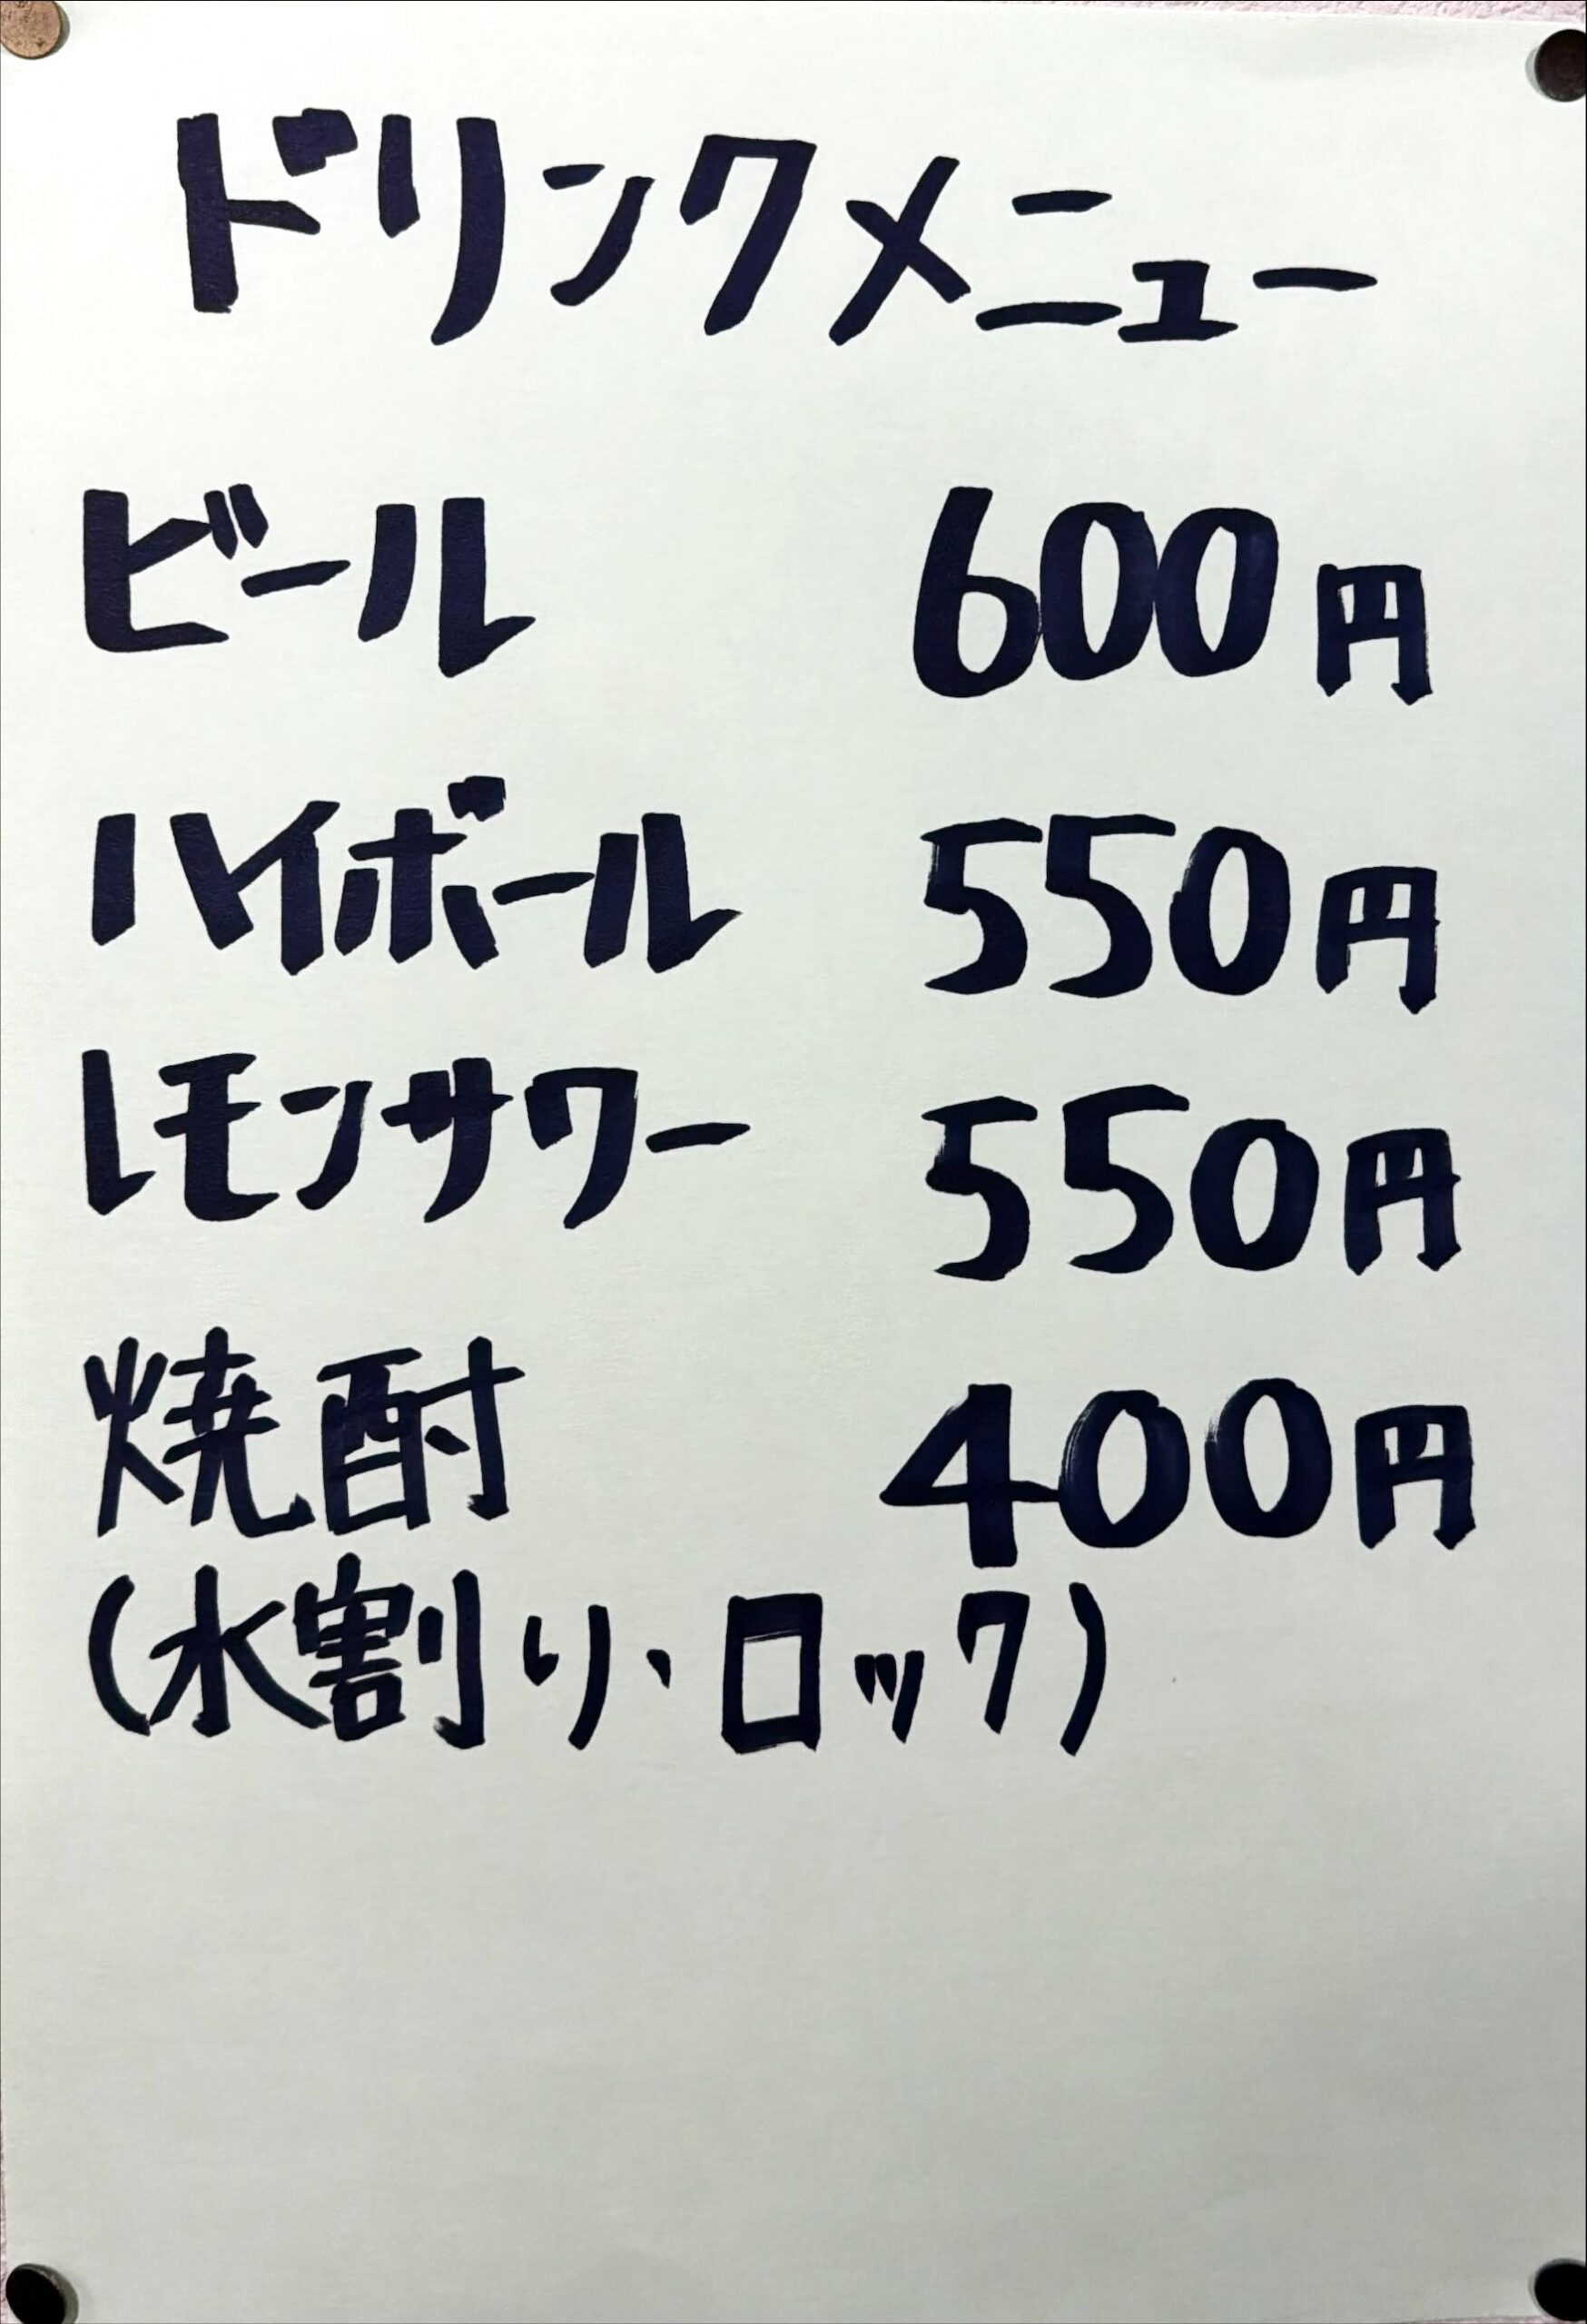 ドリンクメニュー
ビール 600円
ハイボール 550円
レモンサワー 550円
焼酎 400円
(水割り、ロック)